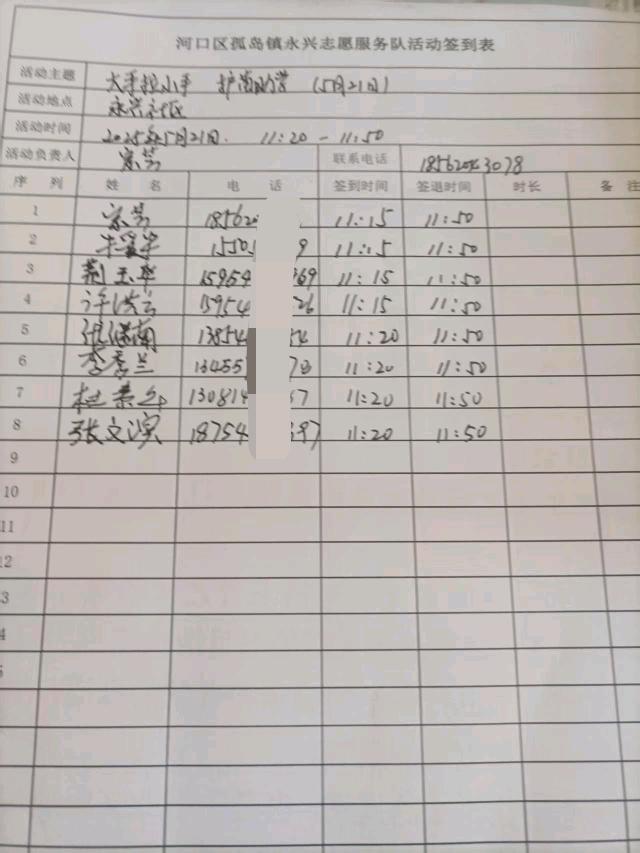 河口区孤岛镇永兴志愿服务队活动签到表
活动主题 大手拉小手 护尚助学 (5月21日)
活动地点 永兴社区
活动时间 2025年5月21日. 11:20 - 11:50
活动负责人 宗芳 联系电话
序 列 姓 名 电 话 签到时间 签退时间 时长 备 注
1 宗芳 18562 11:15 11:50
2 1550 9 11:15 11:50
3 荆玉华 15954 69 11:15 11:50
4 许洪云 15954 26 11:15 11:50
5 13854 54 11:20 11:50
6 李秀兰 13455 78 11:20 11:50
7 杜素 130814 7 11:20 11:50
8 张文溟 18754 397 11:20 11:50
9
10
11
12
3
4